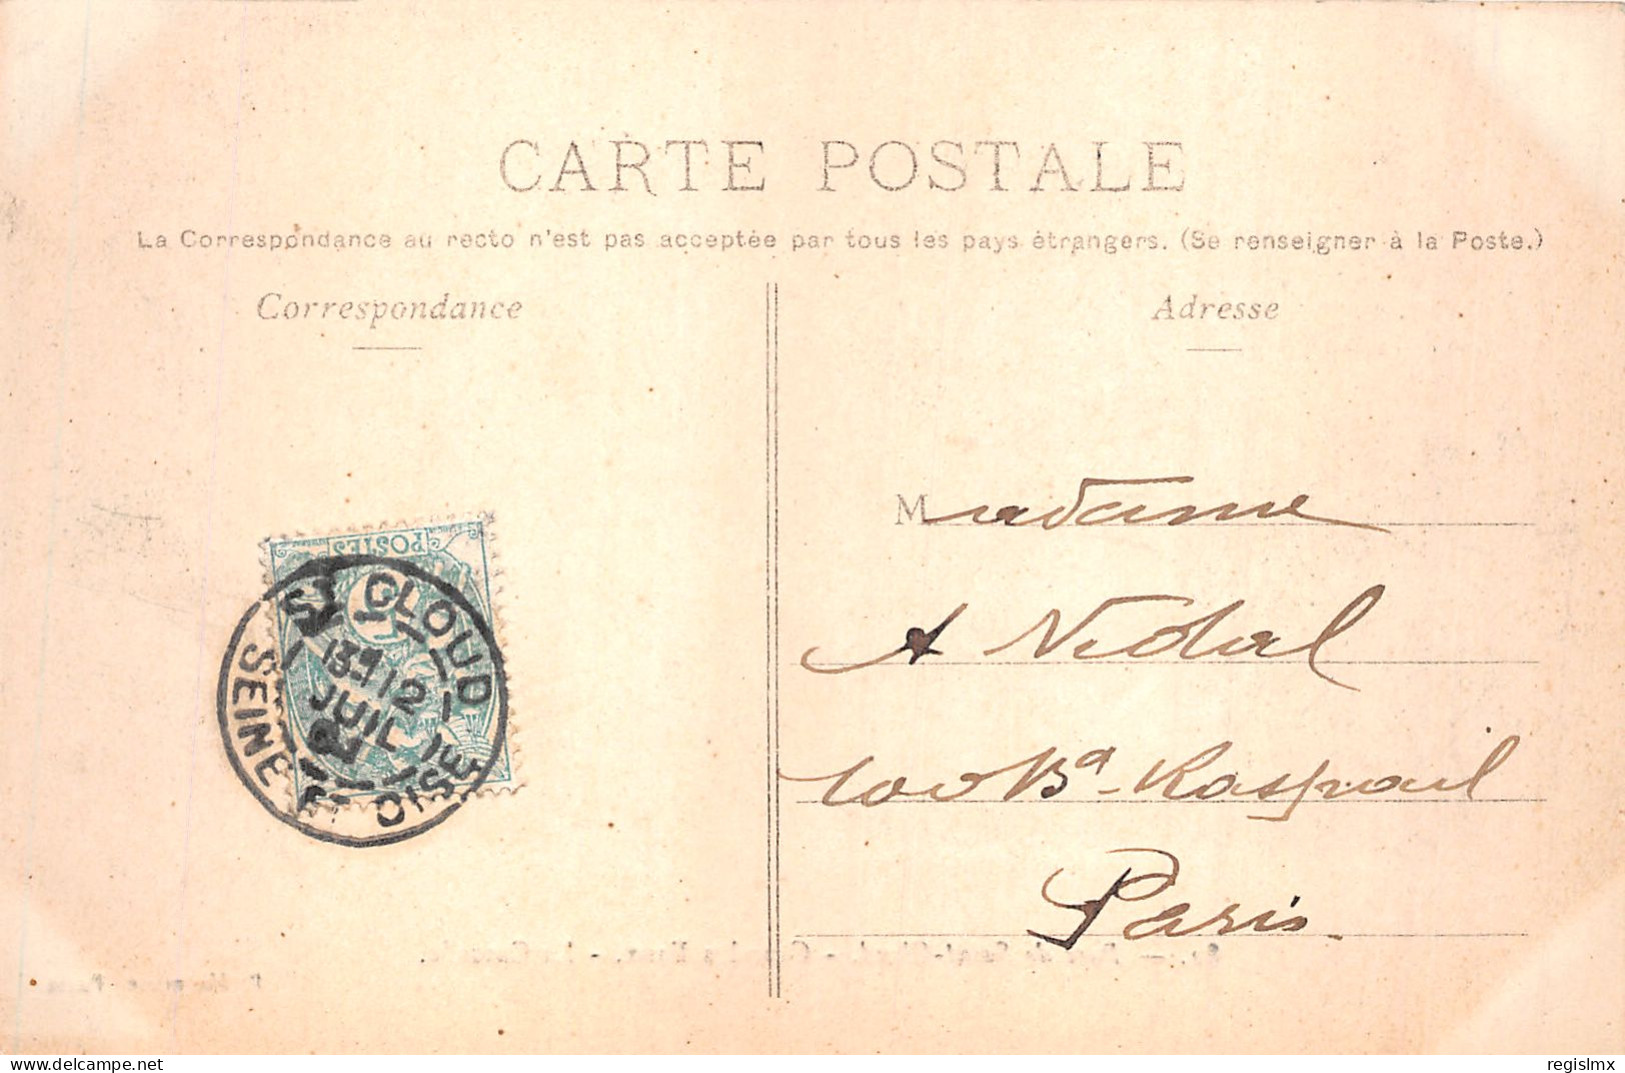 CARTE POSTALE
La Correspondance au recto n'est pas acceptée par tous les pays étrangers. (Se renseigner à la Poste.)
Correspondance
Adresse
POSTES
ST CLOUD
12
JUIL
SEINE ET OISE
Madame
A Nidal
100 Bd. Raspail
Paris
regislmx
delcampe.net